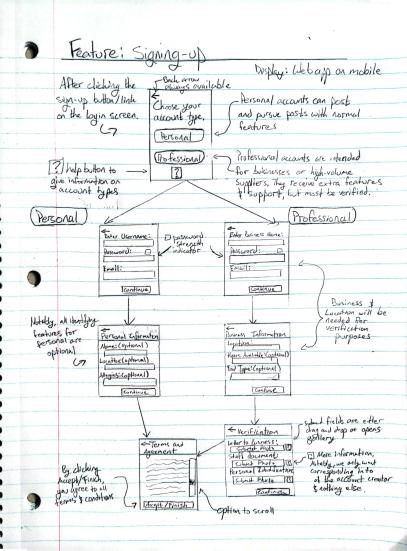 Feature: Signing-up
Display: Web app on mobile
After clicking the
sign-up button/link
on the login screen.
Back arrow
always available
Choose your
account type,
Personal
Professional
?
Personal accounts can post
and pursue posts with normal
features
? help button to
give information on
account types
Professional accounts are intended
for businesses or high-volume
suppliers, They receive extra features
& support, but must be verified.
Personal
Professional
Enter Username:
Password:
Email:
Continue
password
strength
indicator
Enter business name:
Password:
Email:
Continue
Business &
Location will be
needed for
verification
purposes
Notably, all identifying
features for
personal are
optional
Personal Information
Name:(optional)
Location:(optional)
(optional)
Continue
Business Information
Location:
Hours Available:(optional)
Food Types:(optional)
Continue
Terms and
Agreement
Accept/Finish
By clicking
Accept/Finish,
you agree to all
terms & conditions
option to scroll
Verification
Letter to business:
Submit Photo
document:
Submit Photo
Personal Identification
Submit Photo
Continue
submit fields are either
drag and drop or opens
gallery
? More information,
Notably, we only want
corresponding info
of the account creator
& nothing else.